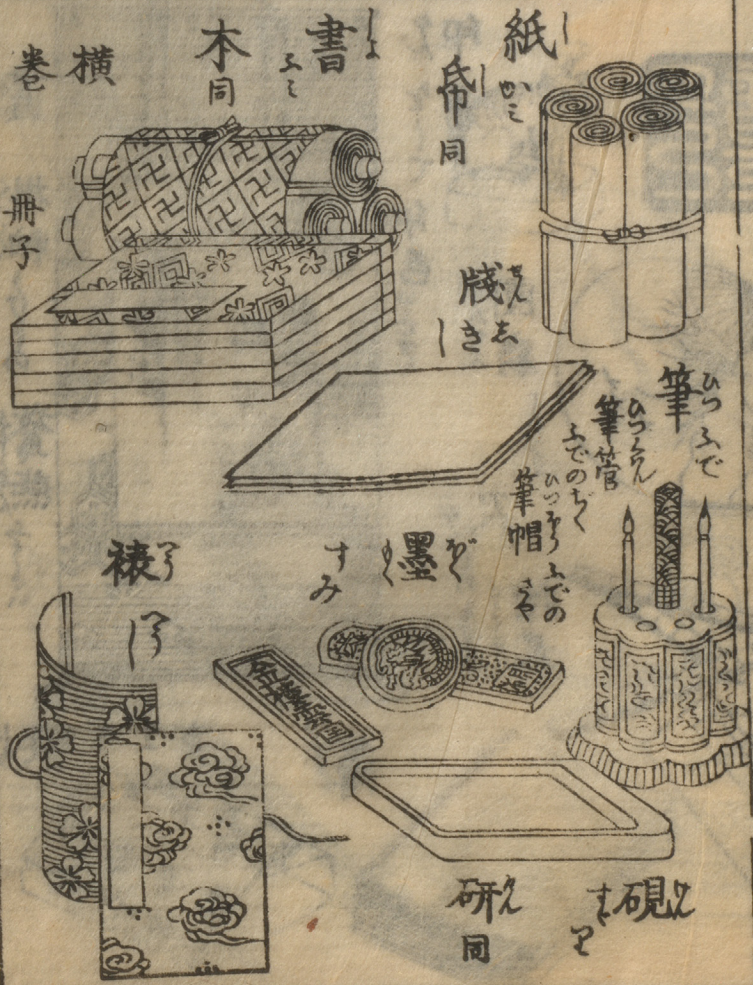 紙
し
かミ
帋
し
同
書
しよ
ふミ
本
同
横
巻
冊子
牋
せん
しき
し
筆
ひつ
ふで
筆管
ひつくわん
ふでのぢく
筆帽
ひつぼう
ふでの
さや
墨
ぼく
もく
すみ
裱
へう
へうし
硯
けん
すゞり
研
けん
同